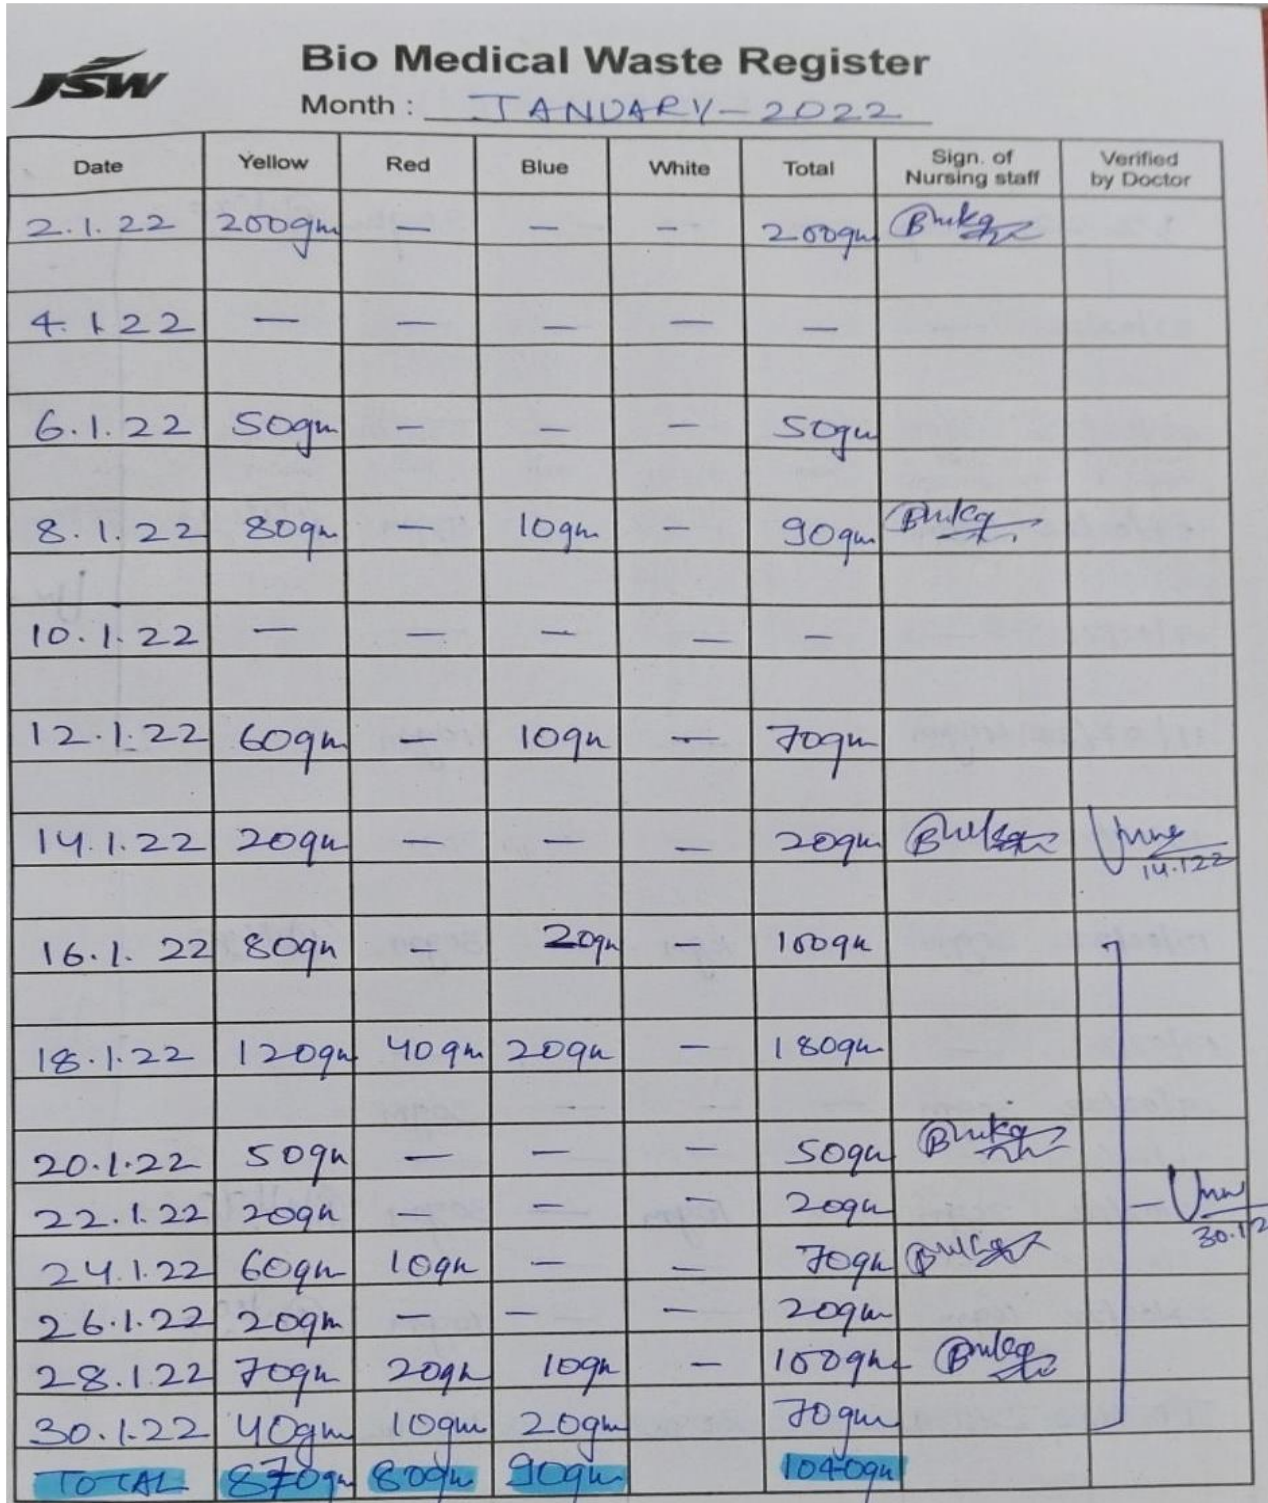 JSW
Bio Medical Waste Register
Month : JANUARY-2022
Date Yellow Red Blue White Total Sign. of Nursing staff Verified by Doctor
2.1.22 200gm — — — 200gm
4.1.22 — — — — —
6.1.22 50gm — — — 50gm
8.1.22 80gm — 10gm — 90gm
10.1.22 — — — — —
12.1.22 60gm — 10gm — 70gm
14.1.22 20gm — — — 20gm
14.1.22
16.1.22 80gm — 20gm — 100gm
18.1.22 120gm 40gm 20gm — 180gm
20.1.22 50gm — — — 50gm
22.1.22 20gm — — — 20gm
24.1.22 60gm 10gm — — 70gm
26.1.22 20gm — — — 20gm
28.1.22 70gm 20gm 10gm — 100gm
30.1.22 40gm 10gm 20gm 70gm
TOTAL 870gm 80gm 90gm 1040gm